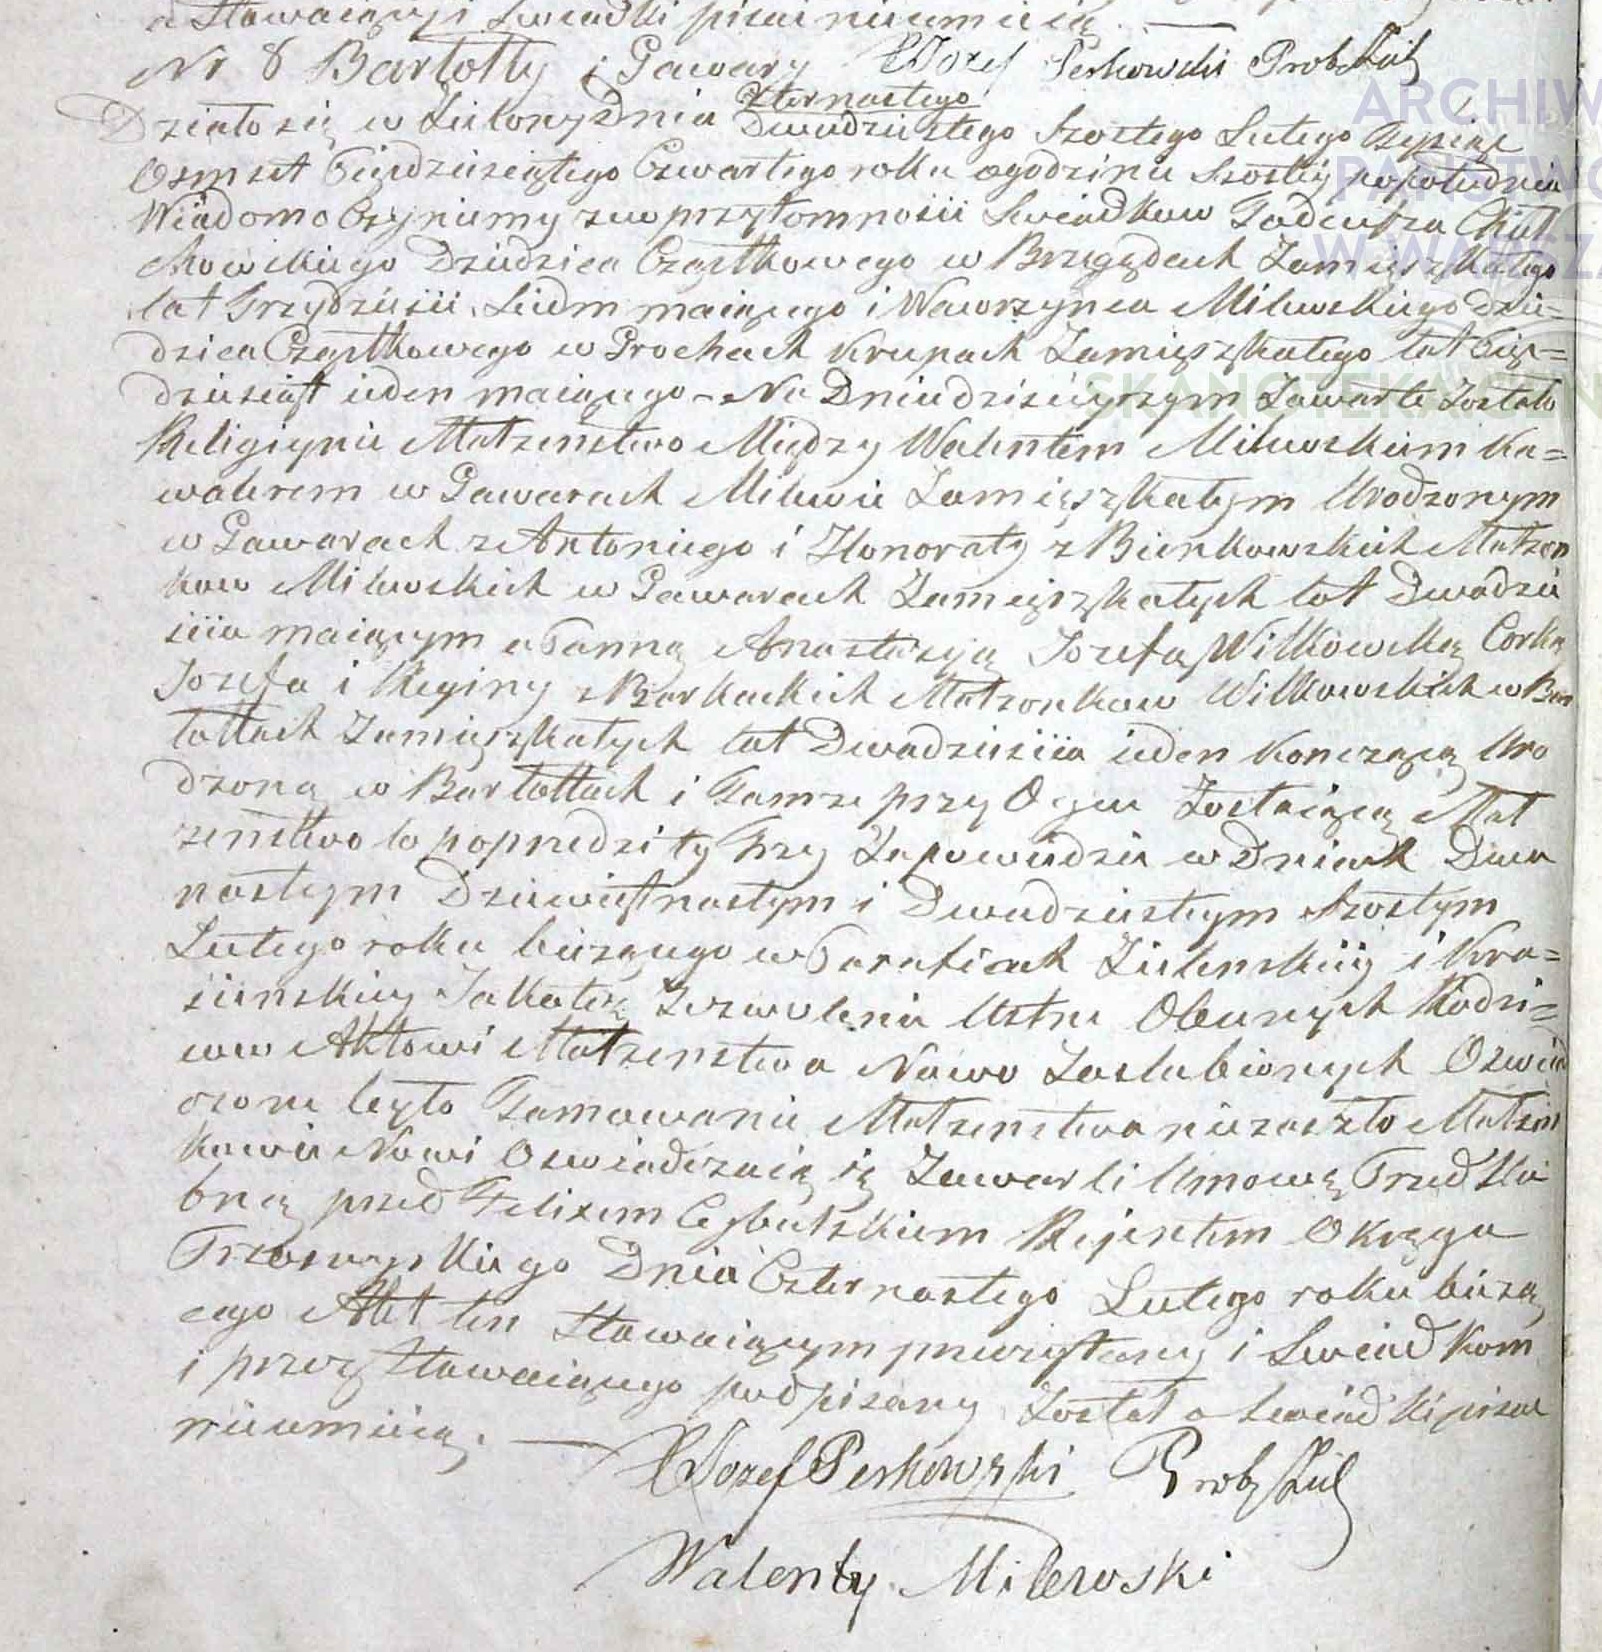 a Stawaiący i Swiadki pisac nieumieią. —
Nr 8 Bartołty i Gawary X Jozef Perkowski Prob Ziel
czternastego
Działo się w Zielony Dnia Dwudziestego Szostego Lutego tysiąc
Osmset Piędziesiątego Czwartego roku ogodzinie Szostey popołudniu
Wiadomo Czyniemy zew przytomnosci Swiadkow Tadeusza Chół
chowskiego Dziedzica Cząstkowego w Brzegędach Zamięszkałego
lat Trzydzieści Siedm maiącego i Wawrzynca Milewskiego dzie=
dzica Cząstkowego w Grochach Krupach Zamięszkałego lat Pię=
dziesiąt ieden maiącego – Na Dniu dzisieyszym Zawarte Zostało
Religiynie Małzenstwo Między Walentem Milewskiem Ka=
walerem w Gawarach Milewie Zamięszkałym Urodzonym
w Gawarach z Antoniego i Honoraty z Bienkowskich Małzon
kow Milewskich w Gawarach Zamięszkałych lat Dwadzie
scia maiącym a Panną Anastazyą Jozefą Wilkowską Corką
Jozefa i Reginy z Barkackich Małzonkow Wilkowskich w Bar
tołtach Zamięszkałych lat Dwadziescia ieden Konczącą Uro
dzoną w Bartołtach i Tamze przy Oycu Zostaiącą Mał
zenstwo to poprzedziły trzy Zapowiedzie w Dniach Dwu
nastym Dziewiętnastym i Dwudziestym Szostym
Lutego roku bieżącego w Parafiach Zielenskiey i Kra=
sinskiey Jakoteż Zezwolenie Ustne Obecnych Rodzi=
cow Aktowi Małzenstwa Nowo Zaslubionych Oswiad
czone było Tamowanie Małzenstwa niezaszło Małzon
kowie Nowi Oswiadczaią iż Zawarli Umowę Przed slu
bną przed Felixem Cybulskiem Rejentem Okręgu
Przasnyskiego Dnia Czternastego Lutego roku bieżą
cego Akt ten Stawaiącym przeczytany i Swiadkom
i przez Stawaiącego podpisany Został a Swiadki pisac
nieumieią. —
X Jozef Perkowski Prob Ziel
Walenty Milewski
ARCHIW
PAŃSTWO
W WARSZA
SKANOTEKA